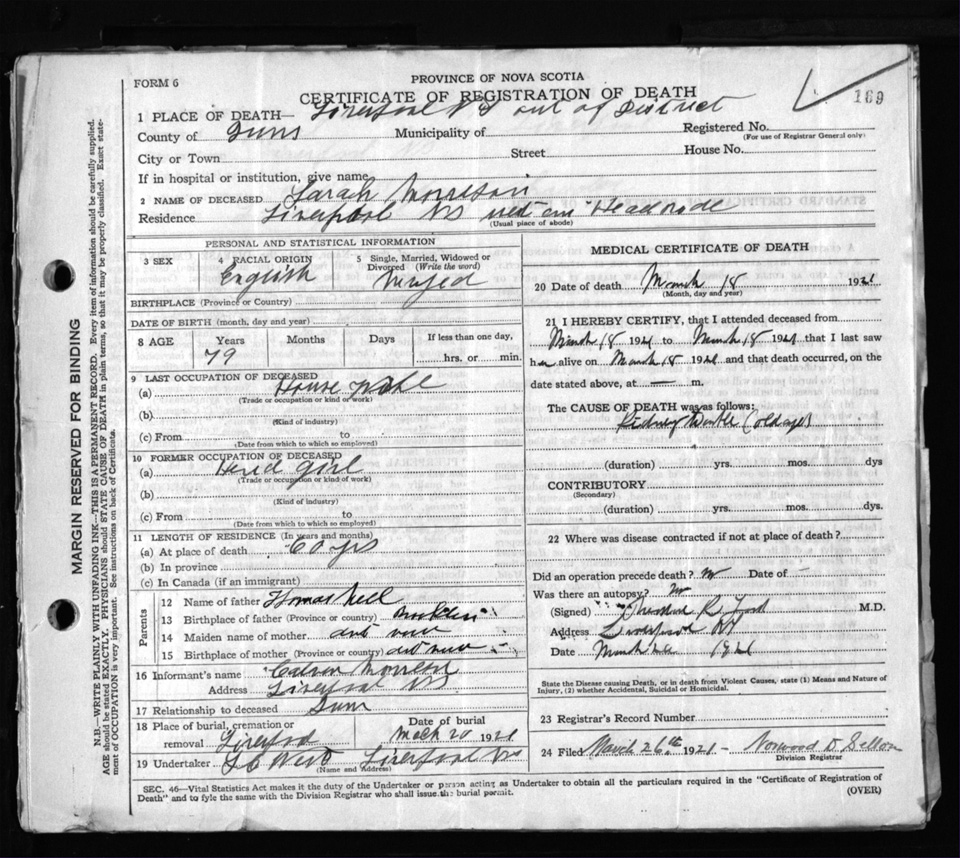 PROVINCE OF NOVA SCOTIA
FORM 6
CERTIFICATE OF REGISTRATION OF DEATH
169
1 PLACE OF DEATH— Liverpool NS out of District
County of Quns Municipality of Registered No.
(For use of Registrar General only)
City or Town Street House No.
If in hospital or institution, give name
2 NAME OF DECEASED Sarah Morrison
Residence Liverpool NS
(Usual place of abode)
PERSONAL AND STATISTICAL INFORMATION
3 SEX 4 RACIAL ORIGIN 5 Single, Married, Widowed or Divorced (Write the word)
English
BIRTHPLACE (Province or Country)
DATE OF BIRTH (month, day and year)
8 AGE Years Months Days If less than one day,
79 hrs. or min.
9 LAST OCCUPATION OF DECEASED
(a) House
(Trade or occupation or kind of work)
(b)
(Kind of industry)
(c) From to
(Date from which to which so employed)
10 FORMER OCCUPATION OF DECEASED
(a) girl
(Trade or occupation or kind of work)
(b)
(Kind of industry)
(c) From to
(Date from which to which so employed)
11 LENGTH OF RESIDENCE (In years and months)
(a) At place of death 60 yrs
(b) In province
(c) In Canada (if an immigrant)
Parents
12 Name of father Thomas
13 Birthplace of father (Province or country)
14 Maiden name of mother
15 Birthplace of mother (Province or country)
16 Informant's name
Address Liverpool NS
17 Relationship to deceased
18 Place of burial, cremation or removal Liverpool
Date of burial March 20 1921
19 Undertaker West Liverpool NS
(Name and Address)
MEDICAL CERTIFICATE OF DEATH
20 Date of death March 18 1921
(Month, day and year)
21 I HEREBY CERTIFY, that I attended deceased from
March 18 1921 to March 18 1921 that I last saw
her alive on March 18 1921 and that death occurred, on the
date stated above, at — m.
The CAUSE OF DEATH was as follows:
Kidney trouble (old age)
(duration) yrs. mos. dys
CONTRIBUTORY
(Secondary)
(duration) yrs. mos. dys.
22 Where was disease contracted if not at place of death?
Did an operation precede death? no Date of –
Was there an autopsy? no
(Signed) R. Ford M.D.
Address Liverpool NS
Date March 1921
State the Disease causing Death, or in death from Violent Causes, state (1) Means and Nature of
Injury, (2) whether Accidental, Suicidal or Homicidal.
23 Registrar's Record Number
24 Filed March 26th 1921 – Norwood D. Sellon
Division Registrar
SEC. 46—Vital Statistics Act makes it the duty of the Undertaker or person acting as Undertaker to obtain all the particulars required in the "Certificate of Registration of
Death" and to fyle the same with the Division Registrar who shall issue the burial permit.
(OVER)
MARGIN RESERVED FOR BINDING
N.B.—WRITE PLAINLY WITH UNFADING INK—THIS IS A PERMANENT RECORD. Every item of information should be carefully supplied.
AGE should be stated EXACTLY. PHYSICIANS should STATE CAUSE OF DEATH in plain terms, so that it may be properly classified. Exact state-
ment of OCCUPATION is very important. See instructions on back of Certificate.